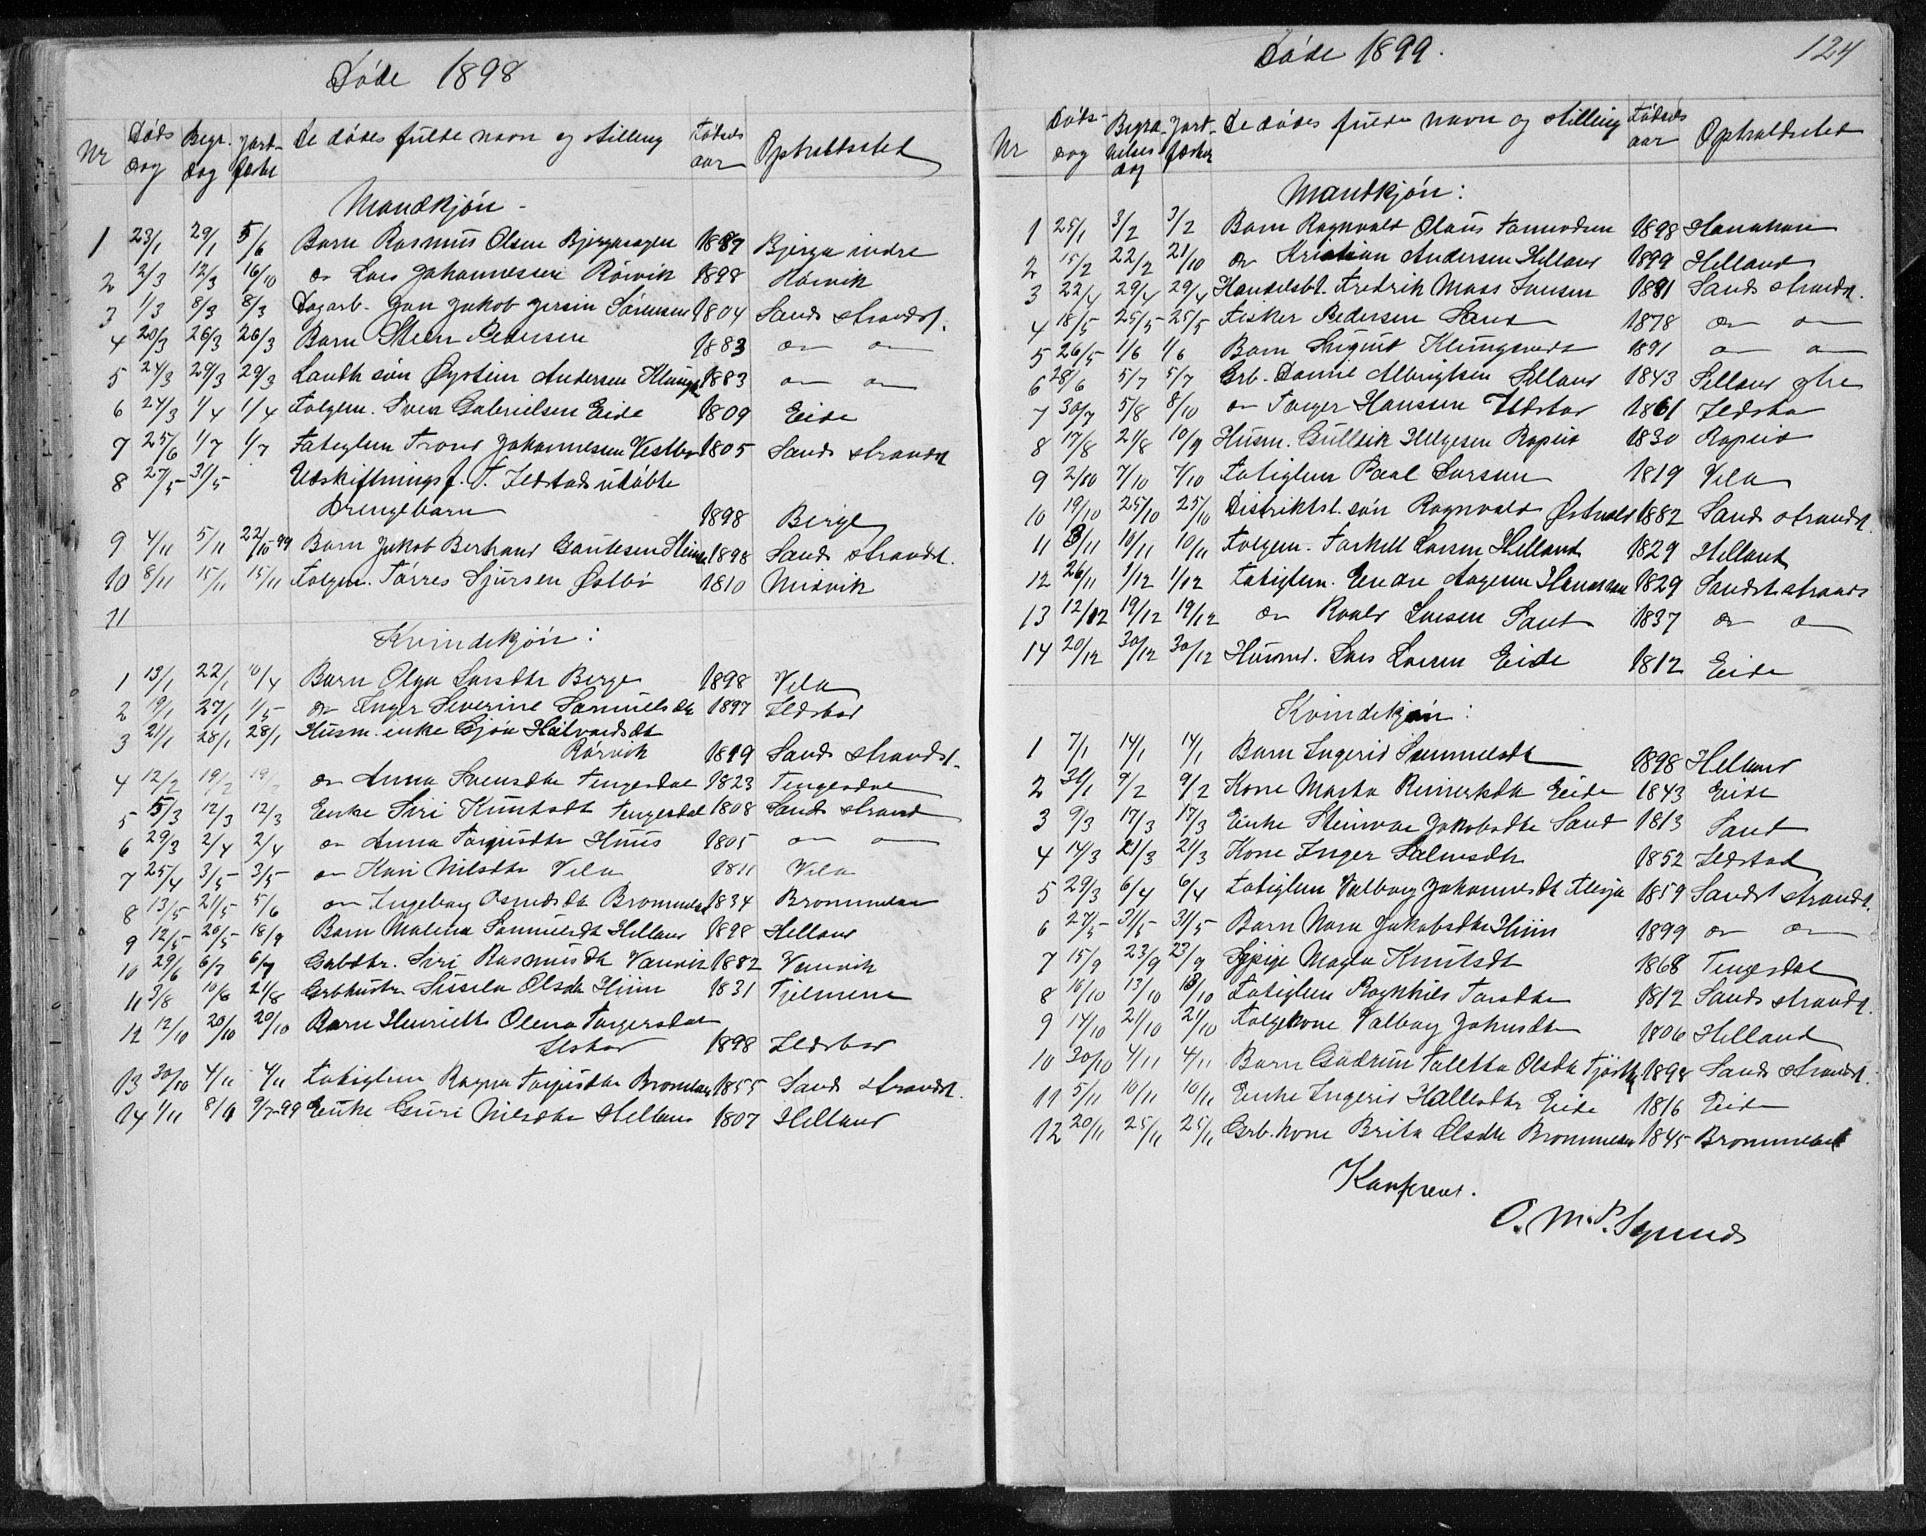 Døde 1898
Nr Døds dag Begr. dag Jordfæstet De dødes fulde navn og stilling Fødselsaar Opholdssted
Mandkjøn -
1 23/1 29/1 5/6 Barn Rasmus Olsen 1887 Bjerga indre
2 2/3 12/3 16/10 do Lars Johannessen Rörvik 1898 Rörvik
3 1/3 8/3 8/3 Dagarb. Jan Jakob Sörensen 1804 Sands strandst.
4 20/3 26/3 26/3 Barn Steen Pedersen 1883 do do
5 24/3 29/3 29/3 Landh. søn Øystein Andersen 1883 do do
6 24/3 1/4 1/4 Folgem. Sven Gabrielsen Eide 1809 Eide
7 25/6 1/7 1/7 Fatiglem Trond Johannessen Vestbö 1805 Sands strandst
8 27/5 31/5 Udskiftningsf. T. Ilstads udöbte
Drengebarn 1898 Berge
9 4/11 5/11 22/10 99 Barn Jakob Bertrand Gautesen 1898 Sands strandst.
10 8/11 15/11 15/11 Folgem. Törres Sjursen Östbö 1810 Nisvik
11
Kvindekjøn:
1 13/1 22/1 10/4 Barn Olga Larsdtr Berge 1898 Vela
2 19/1 27/1 1/5 do Inger Severine Samuelsdtr 1897 Ilsbor
3 21/1 28/1 28/1 Husm. enke Gjöa Halvardsdt
Rörvik 1819 Sands strandst.
4 12/2 19/2 19/2 do Anna Svensdtr Tengesdal 1823 Tengesdal
5 5/3 12/3 12/3 Enke Siri Knutsdt Tengesdal 1808 Sands strand
6 29/3 2/4 2/4 do Anna Torjusdtr Huus 1805 do do
7 25/4 3/5 3/5 do Kari Nilsdtr Vela 1811 Vela
8 13/5 21/5 5/6 do Ingeborg Osmdsdtr Brommeland 1834 Brommeland
9 12/5 20/5 18/9 Barn Malena Samuelsdt Helland 1898 Helland
10 29/6 6/7 6/7 Gabdtr. Siri Rasmusdt Vanvik 1882 Vanvik
11 3/8 10/8 21/8 Grbhustr Sissela Olsdtr Hiim 1831 Tjelmene
12 12/10 20/10 20/10 Barn Henriette Olena Torgersdtr
1898 Ilsbor
13 30/10 4/11 4/11 Fatiglem Ragna Torjusdtr Brommeland 1855 Sands strandst.
14 1/11 8/11 9/7-99 Enke Guri Nilsdtr Helland 1807 Helland
Døde 1899.
124
Nr Døds-dag Begravelsesdag Jordfæstet De dødes fulde navn og stilling Fødselsaar Opholdssted
Mandkjøn:
1 25/1 3/2 3/2 Barn Ragnvald Olaus 1898
2 15/2 22/2 21/10 do Kristian Andersen Helland 1899 Helland
3 22/4 29/4 29/4 Handelsbt. Fredrik Moss Jansen 1881 Sands strandst.
4 18/5 25/5 25/5 Fisker Pedersen Sand 1878 do do
5 26/5 1/6 1/6 Barn Sigurd 1891 do do
6 28/6 5/7 5/7 Grb. Daniel Albrigtsen Selland 1843 Selland ytre
7 30/7 5/8 8/10 do Torger Hanssen Ilstad 1861 Ilsbo
8 17/8 21/8 10/9 Husm. Gullik Helgesen Rapeid 1830 Rapeid
9 2/10 7/10 7/10 Fatiglem Paal Larsen 1819 Vela
10 19/10 25/10 25/10 Distriktsl. søn Ragnvald 1882 Sands strandst.
11 3/11 10/11 10/11 Folgem. Torkell Larsen Helland 1829 Helland
12 26/11 1/12 1/12 Fatiglem. Endre Aagesen 1829 Sands strands
13 12/12 19/12 19/12 do Roald Larsen Sand 1837 do do
14 20/12 30/12 30/12 Husmd. Lars Larsen Eide 1812 Eide
Kvindekjøn:
1 7/1 14/1 14/1 Barn Ingerid Samuelsdt 1898 Heland
2 31/1 9/2 9/2 Kone Marta Reinertsdtr Eide 1843 Eide
3 9/3 17/3 17/3 Enke Steinvor Jakobsdtr Sand 1813 Sand
4 14/3 21/3 21/3 Kone Inger Salvesdtr 1852 Ilstad
5 29/3 6/4 6/4 Fatiglem Valborg Johannesdt 1859 Sands strandst.
6 27/5 31/5 31/5 Barn Nora Jakobsdtr Hiim 1899 do do
7 15/9 23/9 23/9 Pige Magla Knutsdt 1868 Tengesdal
8 10/10 13/10 13/10 Fatiglem Ragnhild Torsdtr 1812 Sands strandst.
9 14/10 21/10 21/10 Folgekone Valborg Johnsdtr 1806 Helland
10 30/10 4/11 4/11 Barn Gudrun Taletta Olsdtr 1898 Sands strandst.
11 5/11 10/11 10/11 Enke Ingerid Hallesdtr Eide 1816 Eide
12 20/11 25/11 25/11 Grb.kone Brita Olsdtr Brommeland 1845 Brommeland
Konfereret.